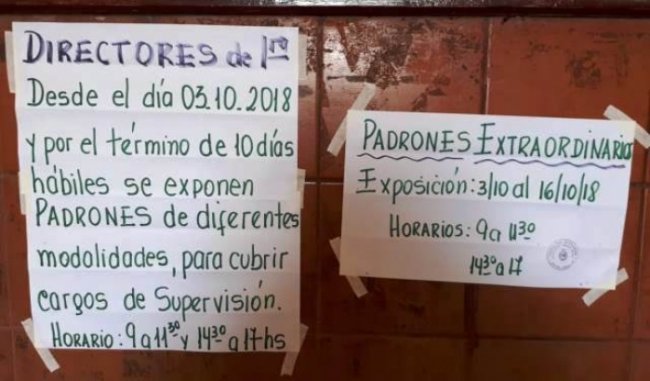 DIRECTORES de 1ra
Desde el día 03.10.2018
y por el término de 10 días
hábiles se exponen
PADRONES de diferentes
modalidades, para cubrir
cargos de Supervisión.
HORARIO: 9 a 11³⁰ y 14³⁰ a 17hs
PADRONES EXTRAORDINARIOS
Exposición: 3/10 al 16/10/18
HORARIOS: 9 a 11³⁰
14³⁰ a 17